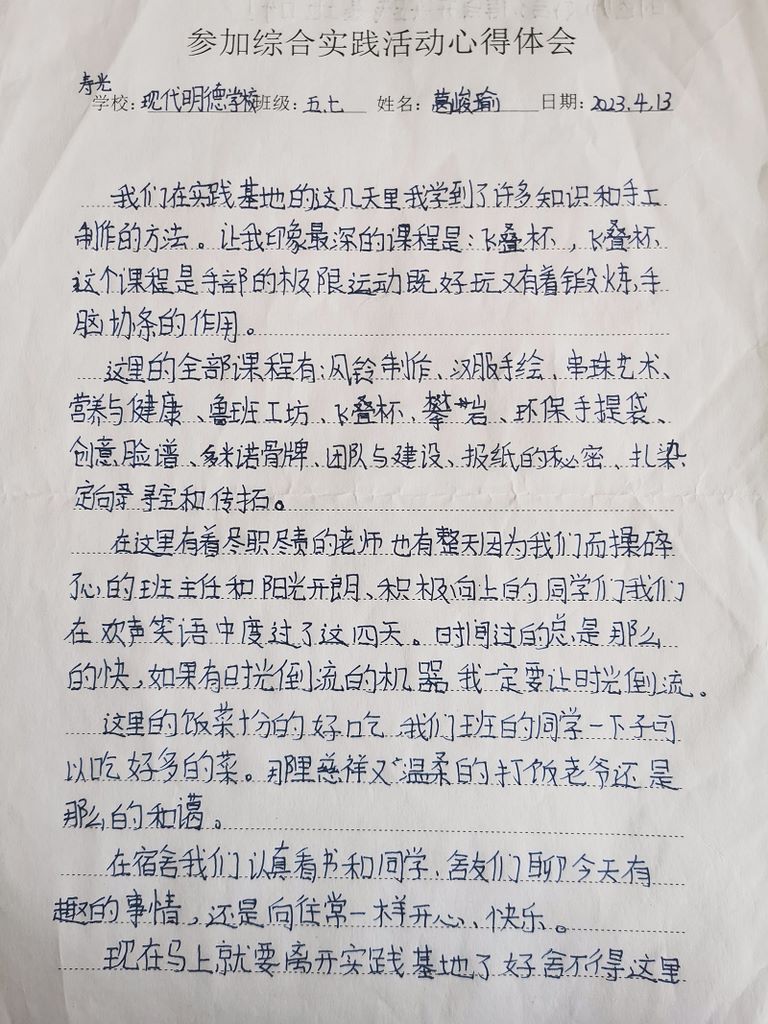 参加综合实践活动心得体会
寿光
学校：现代明德学校班级：五.七 姓名：葛峻瑜 日期：2023.4.13
我们在实践基地的这几天里我学到了许多知识和手工
制作的方法。让我印象最深的课程是：飞叠杯，飞叠杯
这个课程是手部的极限运动既好玩又有着锻炼手
脑协条的作用。
这里的全部课程有：风铃制作、汉服手绘、串珠艺术、
营养与健康、鲁班工坊、飞叠杯、攀岩、环保手提袋、
创意脸谱、多米诺骨牌、团队与建设、报纸的秘密、扎染
定向寻宝和传拓。
在这里有着尽职尽责的老师也有整天因为我们而操碎
了心的班主任和阳光开朗、积极向上的同学们我们
在欢声笑语中度过了这四天。时间过的总是那么
的快，如果有时光倒流的机器我一定要让时光倒流。
这里的饭菜十分的好吃，我们班的同学一下子可
以吃好多的菜。那里慈祥又温柔的打饭老爷还是
那么的和谒。
在宿舍我们认真看书和同学、舍友们聊今天有
趣的事情，还是向往常一样开心、快乐。
现在马上就要离开实践基地了好舍不得这里